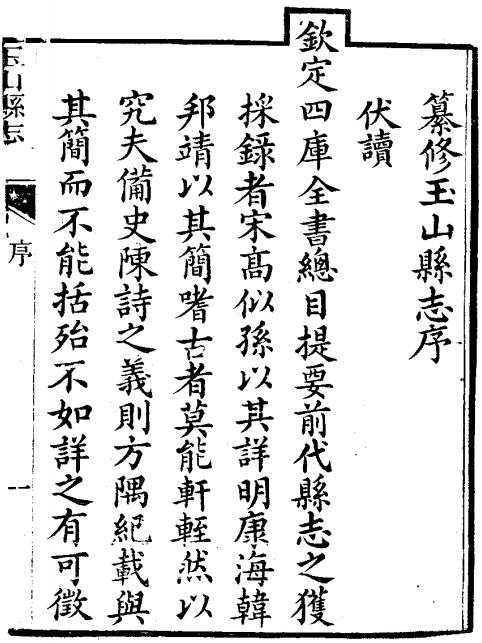 纂修玉山縣志序
伏讀
欽定四庫全書總目提要前代縣志之獲
採錄者宋高似孫以其詳明康海韓
邦靖以其簡嗜古者莫能軒輊然以
究夫備史陳詩之義則方隅紀載與
其簡而不能括殆不如詳之有可徵
玉山縣志
序
一